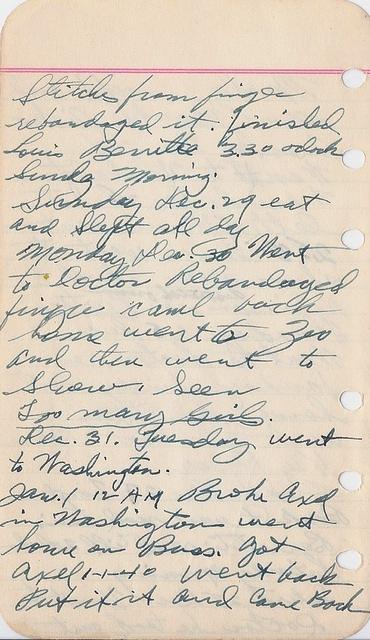 Stitches from finger
rebandaged it. finished
Louis Berette 3.30 oclock
Sunda Morning.
Sunday Dec. 29 eat
and Slept all day
Monday Dec. 30 Went
to Doctor Rebandaged
finger came back
home went to Zoo
and then went to
Show, Seen
Too many Girls.
Dec. 31. Tuesday went
to Washington.
Jan. 1 12 AM Broke axel
in Washington went
home on Buss. Got
axel 1-1-40 went back
Put it it and Came Back